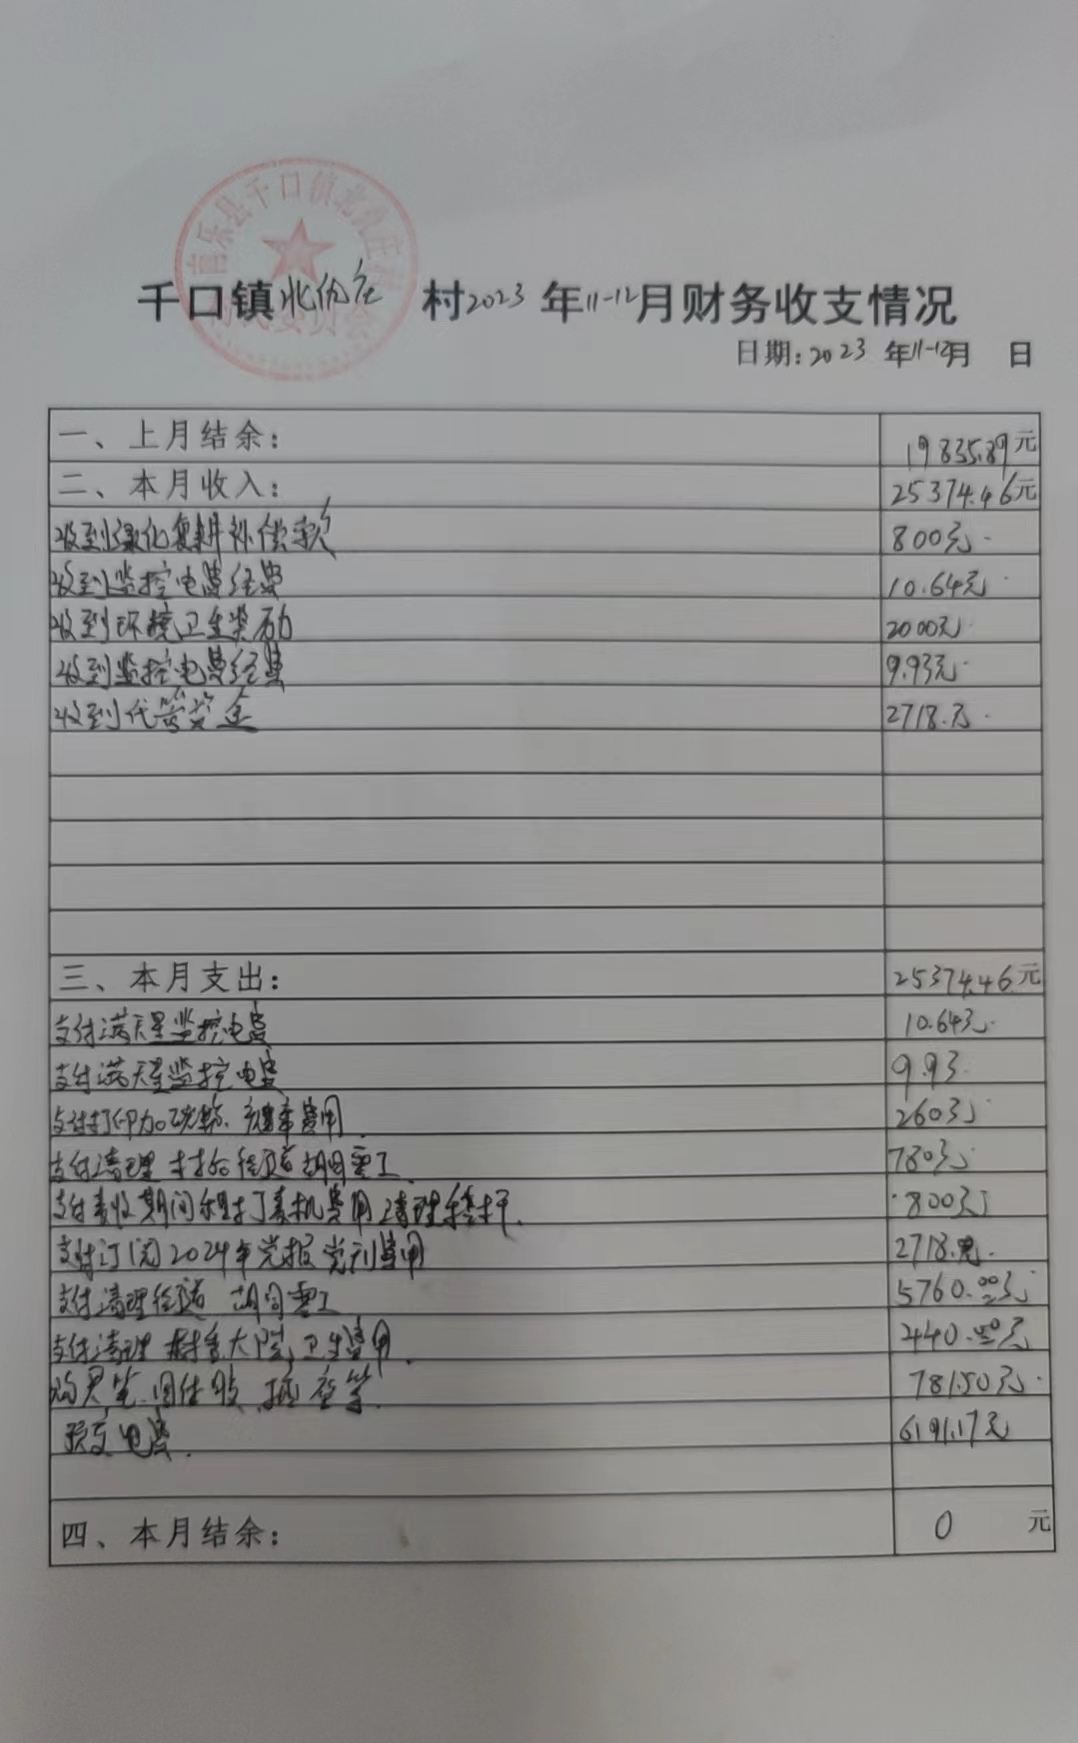 千口镇北仇庄 村2023 年11-12月财务收支情况
日期:2023 年11-12月 日
一、上月结余: 19835.89元
二、本月收入: 25374.46元
收到绿化复耕补偿款 800元
收到监控电费经费 10.64元
收到环境卫生奖励 2000元
收到监控电费经费 9.93元
收到代管资金 2718.元
三、本月支出: 25374.46元
支付满天星监控电费 10.64元
支付满天星监控电费 9.93
支付打印 费用 260元
支付清理村 街道胡同零工 780元
支付麦收期间 打麦机费用 清理秸秆. 800元
支付订阅2024年党报党刊费用 2718.元.
支付清理街道 胡同零工 5760.00元
支付清理村室大院卫生费用. 440.00元
781.50元
预交电费. 6191.17元
四、本月结余: 0 元